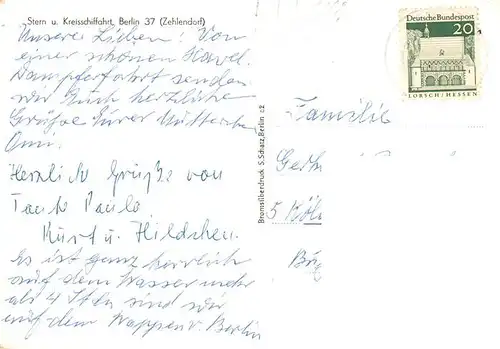 Stern u. Kreisschiffahrt, Berlin 37 (Zehlendorf)
Unsere Lieben! Von
einer schönen Havel
Dampferfahrt senden
wir Euch herzliche
Grüße Eure Mutter
Herzlich Grüße von
Tante Paula
Kurt u. Hildchen.
Es ist ganz herrlich
auf dem Wasser mehr
als 4 Stdn sind wir
auf dem Wappen v. Berlin
Bromsilberdruck S. Schatz, Berlin c2
Deutsche Bundespost
20
LORSCH/HESSEN
Familie
5 Köln